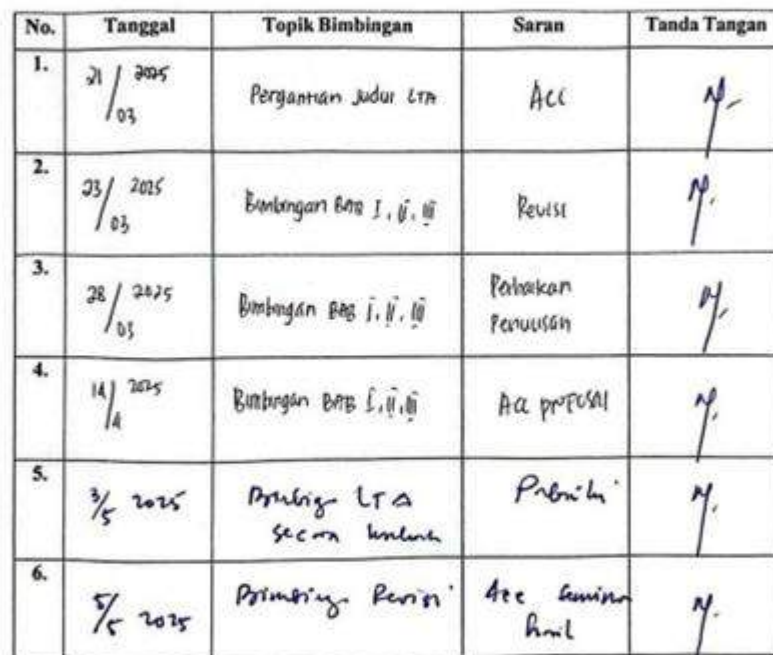 No. Tanggal Topik Bimbingan Saran Tanda Tangan
1. 21/03 2025 Pergantian Judul LTA Acc
2. 23/03 2025 Bimbingan BAB I, II, III Revisi
3. 28/03 2025 Bimbingan BAB I, II, III Perbaikan
Penulisan
4. 14/4 2025 Bimbingan BAB I, II, III Acc proposal
5. 3/5 2025 LTA
secara
6. 5/5 2025 Bimbingan Revisi Acc Seminar
Hasil